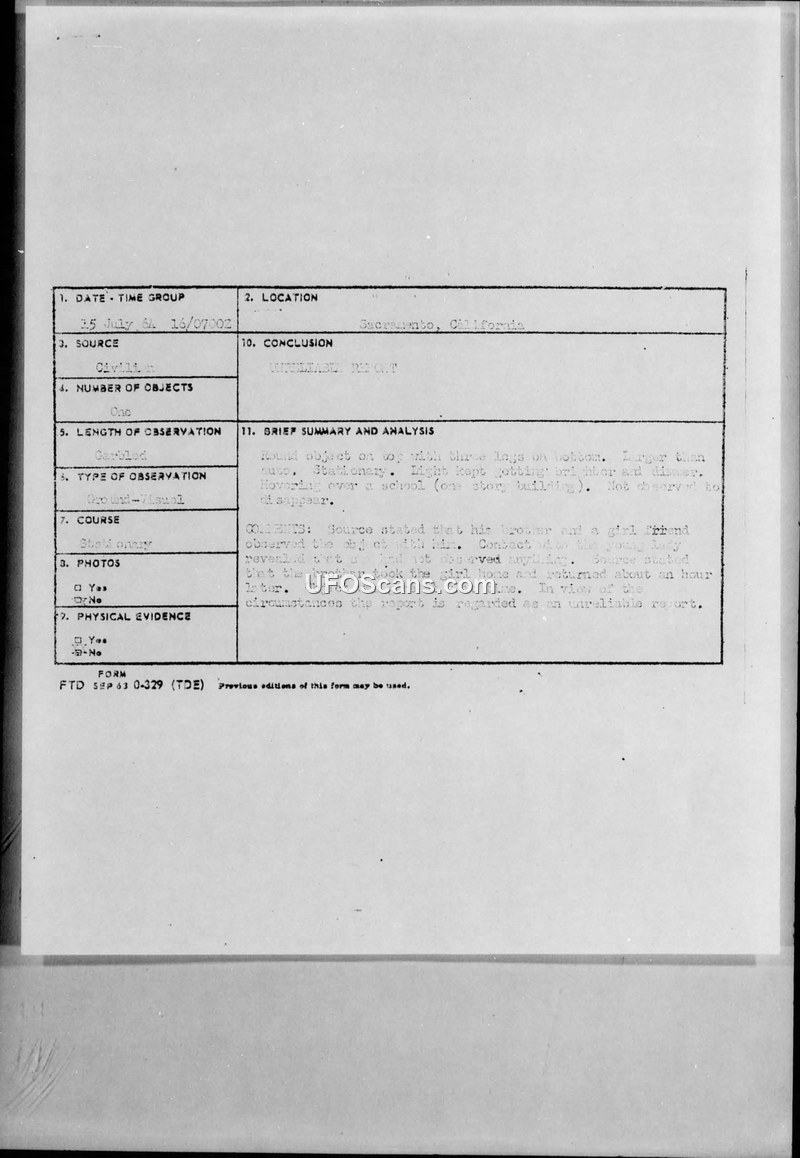 1. DATE - TIME GROUP
15 July 64 16/0700Z
2. LOCATION
Sacramento, California
3. SOURCE
Civilian
10. CONCLUSION
UNRELIABLE REPORT
4. NUMBER OF OBJECTS
One
5. LENGTH OF OBSERVATION
Garbled
11. BRIEF SUMMARY AND ANALYSIS
Round object on top with three legs on bottom. Larger than
auto. Stationary. Light kept getting brighter and dimmer.
Hovering over a school (one story building). Not observed to
disappear.
COMMENTS: Source stated that his brother and a girl friend
observed the object with him. Contact with the young lady
revealed that had not observed anything. Source stated
that the brother took the girl home and returned about an hour
later. In view of the
circumstances the report is regarded as an unreliable report.
6. TYPE OF OBSERVATION
Ground-Visual
7. COURSE
Stationary
8. PHOTOS
Yes
No
9. PHYSICAL EVIDENCE
Yes
No
FORM
FTD SEP 63 0-329 (TDE) Previous editions of this form may be used.
UFOScans.com